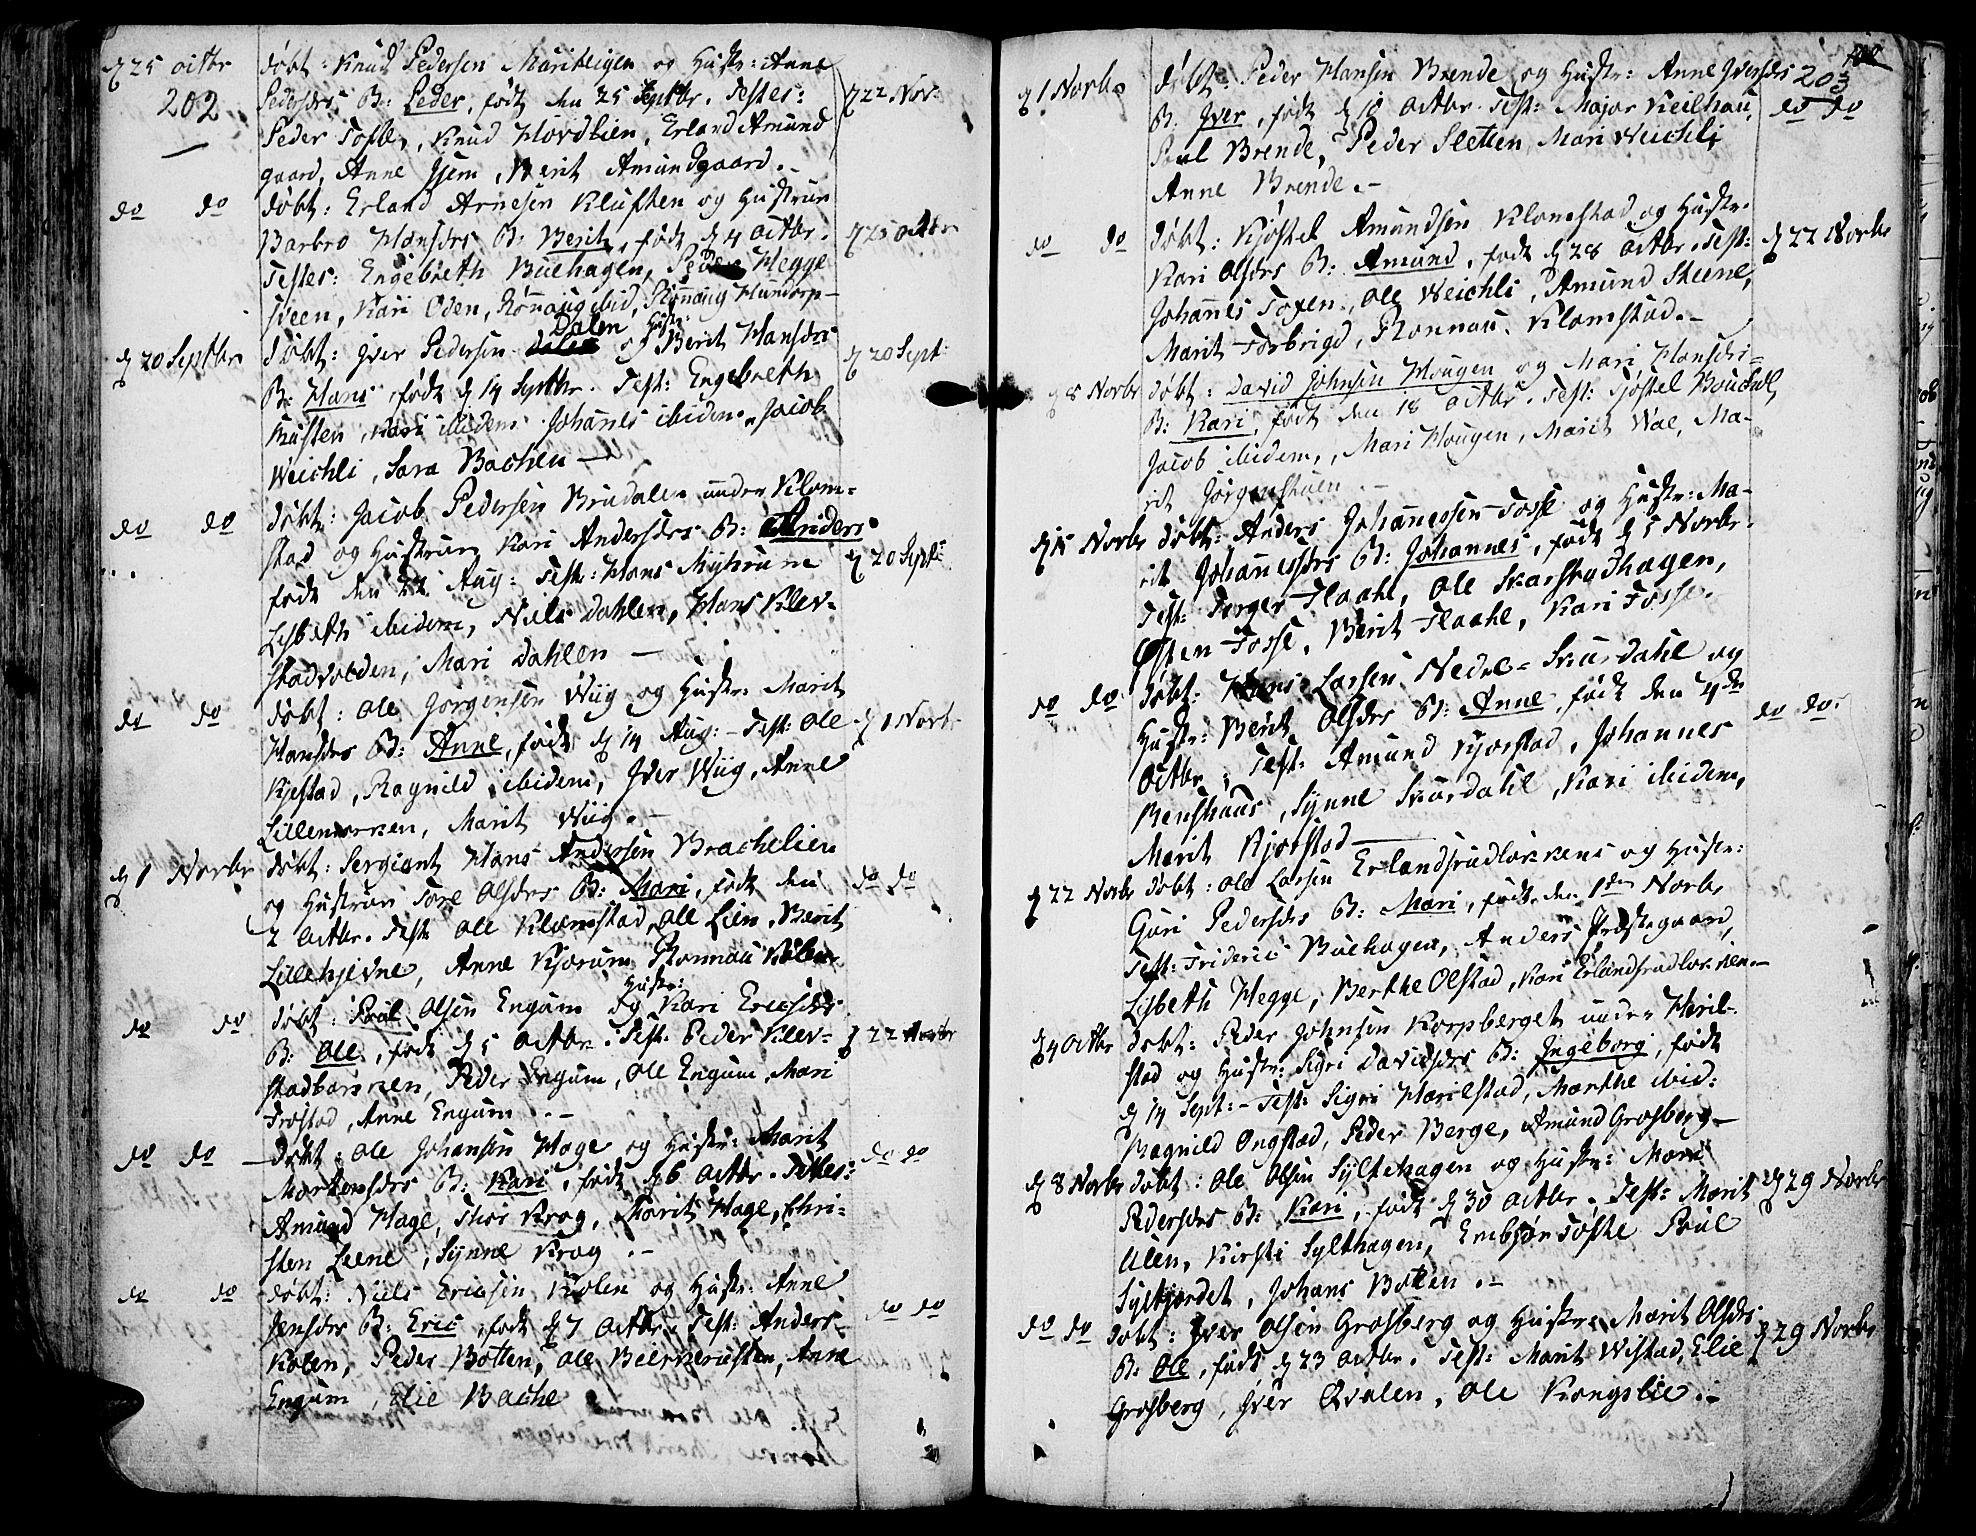 d 25 octbr
202
døbt: Knud Pedersen og Hustr: Anne
Pedersdr B: Peder, født den 25 Septbr. Testes:
Peder Tofte, Knud Hovdlien, Erland Amund
gaard, Anne Jsem, Berit Amundgaard.
d 22 Nov:
do do
døbt: Erland Arnesen Kluften og Hustrue
Barbro Hansdr B: Berit, født d 4 octbr.
Testes: Engebreth Buehagen, Peder Hegge
sveen, Kari Oden, Rönnaug ibid, Rönnaug Hundorp
d 25 octbr
d 20 Septbr
Dalen Hustr:
døbt: Jver Pedersen og Berit Hansdr
B: Hans, født d 14 Septbr. Test: Engebreth
Rusten, Kari ibidem Johanes ibidem, Jacob
Weichli, Sara Bachen
d 20 Sept:
do do
døbt: Jacob Pedersen Brudalen under Klom=
stad og Hustrue Kari Andersdr B: Anders
født den 22 Aug: Test: Hans Myhrene
Lisbeth ibidem, Niels Dahlen, Hans Klev=
stadvolden, Mari Dahlen
d 20 Sept:
do do
døbt: Ole Jörgensen Wiig og Hustr: Marit
Hansdr B: Anne, født d 14 Aug: Test: Ole
Kjestad, Ragnild ibidem, Jver Wiig, Anne
Lillemoen, Marit Wiig.
d 1 Norb:
d 1 Norbr
døbt: Sergiant Hans Andersen Brachelien
og Hustrue Tore Olsdr B: Mari, født den
2 octbr. Test: Ole Klomstad, Ole Lien, Berit
Lillehjevne, Anne Kjorum Ronnau Kolen
do do
do do
Hustr:
døbt: Poul Olsen Engum og Kari Ericsdr
B: Ole, født d 5 octbr. Test: Peder Klev=
stadbakken, Peder Engum, Ole Engum, Mari
Frostad, Anne Engum.
d 22 Norbr
do do
døbt: Ole Johansen Hage og Hustr: Marit
Mortensdr B: Kari, født d 6 octbr. Testes:
Amund Hage, Thor Krog, Marit Hage, Chri=
sten Leene, Synne Krog.
do do
do do
døbt: Niels Ericsen Kolen og Hustr: Anne
Jensdr B: Eric, født d 7 octbr. Test: Anders
Kolen, Peder Botten, Ole, Anne
Engum, Elie Bache
do do
203
d 1 Norbr
døbt: Peder Hansen Brende og Hustr: Anne Jversdr
B: Jver, født d 18 octbr. Test: Major Keilhau,
Poul Brende, Peder Sletten, Mari Weichli
Anne Brende.
do do
do do
døbt: Kjøstel Amundsen Klomstad og Hustr:
Kari Olsdr B: Amund, født d 28 octbr. Test:
Johannes Toxen, Ole Weichli, Amund Steene,
Marit Forbrigd, Ronnau Klomstad.
d 22 Norbr
d 8 Norbr
døbt: David Johnsen Hougen og Mari Hansdr
B: Kari, født den 18 octbr. Test: Kjøstel
Jacob ibidem, Mari Hougen, Marit Wae, Ma-
rit Jörgenstuen.
d 15 Norbr
døbt: Anders Johannessen Fosse og Hustr: Ma-
rit Johannesdr B: Johannes, født d 5 Norbr.
Test: Torger Flaate, Ole Skarstadhagen,
Østen Fosse, Berit Flaate, Kari Fosse.
do do
døbt: Hans Larsen Nedre-Skurdahl og
Hustr: Berit Olsdr B: Anne, født den 4de
octbr, Test: Amund Kjorstad, Johannes
Benshuus, Synne Skurdahl, Kari ibidem,
Marit Kjorstad
do do
d 22 Norbr
døbt: Ole Larsen Erlandsrudlökkens og Hustr:
Guri Pedersdr B: Mari, født den 1de Norbr
Test: Frideric Buehagen, Anders Prestegaard,
Lisbeth Hegge, Berthe Olstad, Kari Erlandsrudlökken
d 4 octbr
døbt: Peder Johnsen Korpberget under Haril-
stad og Hustr: Sigri Davidsdr B: Ingeborg, født
d 14 Sept: Test: Sigri Harilstad, Marthe ibid:
Ragnild Ongstad, Peder Berge, Amund Grosberg
d 8 Norbr
døbt: Ole Olsen Sylthagen og Hustr: Mari
Pedersdr B: Kari, født d 30 octbr. Test: Marit
Ulen, Kirsti Sylthagen, Tofte Poul
Syltjordet, Johans Botten.
d 29 Norbr
do do
døbt: Jver Olsen Grosberg og Hustr: Marit Olsdr
B: Ole, født d 23 octbr. Test: Marit Wistad, Elie
Grosberg, Jver Qvalen, Ole Kongslie.
d 29 Norbr